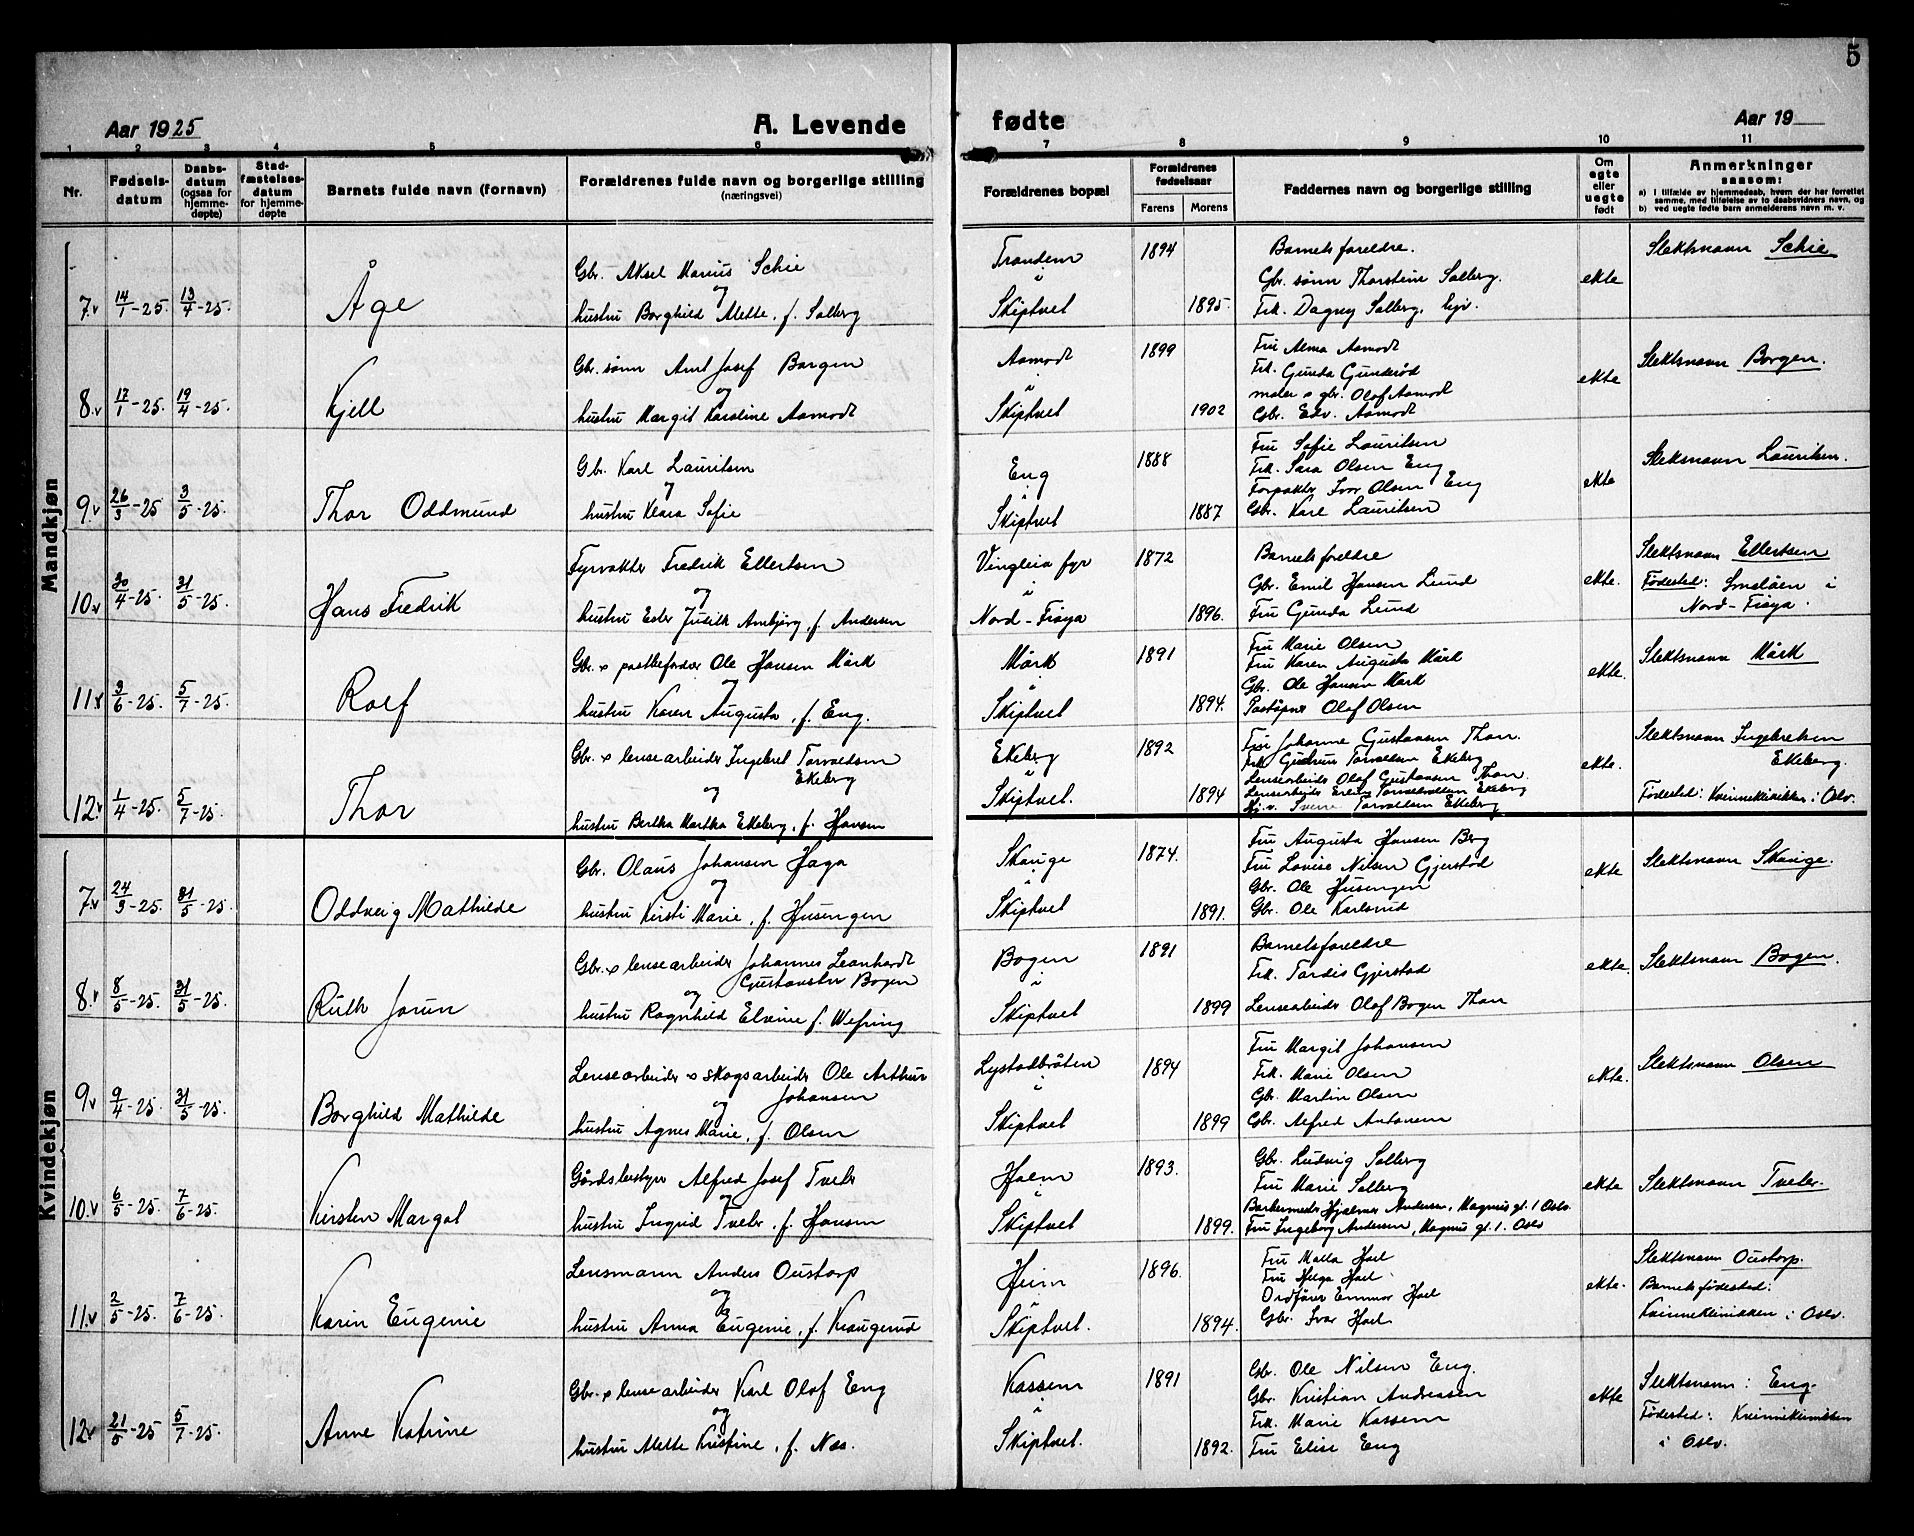 5
Aar 1925
A. Levende fødte
Aar 19
1 2 3 4 5 6 7 8 9 10 11
Nr.
Fødselsdatum
Daabsdatum (ogsaa for hjemmedøpte)
Stadfæstelsesdatum for hjemmedøpte
Barnets fulde navn (fornavn)
Forældrenes fulde navn og borgerlige stilling (næringsvei)
Forældrenes bopæl
Forældrenes fødselsaar
Farens Morens
Faddernes navn og borgerlige stilling
Om egte eller uegte født
Anmerkninger saasom:
a) I tilfælde av hjemmedaab, hvem der har forrettet samme, med tilføielse av to daabsvidners navn, og
b) ved uegte fødte barn anmelderens navn m. v.
Mandkjøn
7.v 14/1-25. 13/4-25.
Åge
Gbr. Aksel Marius Schie
og
hustru Borghild Mette, f. Solberg
Trondem
i
Skiptvet
1894
1895.
Barnets foreldre.
Gbr. sønn Thorstein Solberg.
Frk. Dagny Solberg,
ekte
Slektsnavn Schie
8.v 17/1-25. 19/4-25.
Kjell
Gbr. sønn Arnt Josef Borgen
og
hustru Margit Karoline Aamodt
Aamodt
i
Skiptvet
1899
1902
Fru Alma Aamodt
Frk. Gunda Gunderød
maler & gbr. Olaf Aamodt
Gbr. Edv. Aamodt
ekte
Slektsnavn Borgen.
9.v 26/3-25 3/5-25.
Thor Oddmund
Gbr. Karl Lauritsen
og
hustru Klara Sofie
Eng
i
Skiptvet
1888
1887
Fru Sofie Lauritsen
Frk. Sara Olsen Eng
Forpakter Ivar Olsen Eng
Gbr. Karl Lauritsen
ekte
Slektsnavn Lauritsen.
10.v 30/4-25. 31/5-25.
Hans Fredrik
Fyrvokter Fredrik Ellertsen
og
hustru Ester Judith Arnbjørg, f. Andersen
Vingleia fyr
i
Nord-Frøya
1872
1896.
Barnets foreldre
Gbr. Emil Hansen Lund
Fru Gunda Lund
ekte.
Slektsnavn Ellertsen
Fødested: Smeløen i
Nord-Frøya.
11.v 3/6-25. 5/7-25.
Rolf
Gbr. & postbefordrer Ole Hansen Mørk
og
hustru Karen Augusta, f. Eng.
Mørk
i
Skiptvet
1891
1894.
Fru Marie Olsen
Fru Karen Augusta Mørk
Gbr. Ole Hansen Mørk
Poståpner Olaf Olsen
ekte.
Slektsnavn Mørk
12.v 1/4-25. 5/7-25.
Thor
Gbr. & lensearbeider Ingebret Torvaldsen
Ekeberg
og
hustru Bertha Martha Ekeberg, f. Hansen
Ekeberg
i
Skiptvet.
1892
1894
Fru Johanne Gustavsen Thon.
Frk. Gudrun Torvaldsen Ekeberg
Lensearbeids Olaf Gustavsen Thon.
Lensearbeids Erling Torvaldsen Ekeberg
Torvaldsen Ekeberg
ekte.
Slektsnavn Ingebretsen
Ekeberg.
Fødested: Kvinneklinikken i Oslo.
Kvindekjøn
7.v 24/3-25. 31/5-25.
Oddveig Mathilde
Gbr. Olaus Johansen Haga
og
hustru Kirsti Marie, f. Husengen
Skauge
i
Skiptvet
1874.
1891.
Fru Augusta Hansen Berg
Fru Lovise Nilsen Gjerstod
Gbr. Ole Husengen
Gbr. Ole Karlsrud
ekte
Slektsnavn Skauge.
8.v 8/5-25. 31/5-25.
Ruth Jorun
Gbr. & lensearbeider Johannes Leonhardt
Gustavsen Bogen
og
hustru Ragnhild Elvine f. Wefring
Bogen
i
Skiptvet
1891
1899
Barnets foreldre
Frk. Tordis Gjerstad
Lensearbeider Olaf Bogen Thon
ekte.
Slektsnavn Bogen.
9.v 9/4-25. 31/5-25.
Borghild Mathilde
Lensearbeider & skogsarbeider Ole Arthur
Johansen
og
hustru Agnes Marie, f. Olsen
Lystadbråten
i
Skiptvet
1894
1899
Fru Margit Johansen
Frk. Marie Olsen
Gbr. Martin Olsen
Gbr. Alfred Antonsen
ekte.
Slektsnavn Olsen
10.v 6/5-25. 7/6-25.
Kirsten Margot
Gårdsbestyrer Alfred Josef Tveter
og
hustru Ingrid Tveter, f. Hansen
Holm
i
Skiptvet
1893.
1899.
Gbr. Ludvig Solberg
Fru Marie Solberg
Hjalmar Andersen, Magnus gt. 1 Oslo.
Fru Ingeborg Andersen, Magnus gt. 1. Oslo
ekte
Slektsnavn Tveter.
11.v 2/5-25. 7/6-25.
Karin Eugenie
Lensmann Anders Oustorp
og
hustru Anna Eugenie, f. Kraugerud
Heim
i
Skiptvet.
1896.
1894.
Fru Malla Hoel
Fru Helga Hoel
Ordfører Emmar Hoel
Gbr. Ivar Hoel
ekte.
Slektsnavn Oustorp.
Barnets fødested:
Kvinneklinikken i Oslo.
12.v 21/5-25 5/7-25.
Anne Katrine
Gbr. & lensearbeider Karl Olaf Eng
og
hustru Mette Kristine, f. Næs.
Kassem
i
Skiptvet.
1891
1892.
Gbr. Ole Nilsen Eng.
Gbr. Kristian Andreassen
Frk. Marie Kassem
Fru Elise Eng
ekte
Slektsnavn: Eng.
Fødested: Kvinneklinikken
i Oslo.